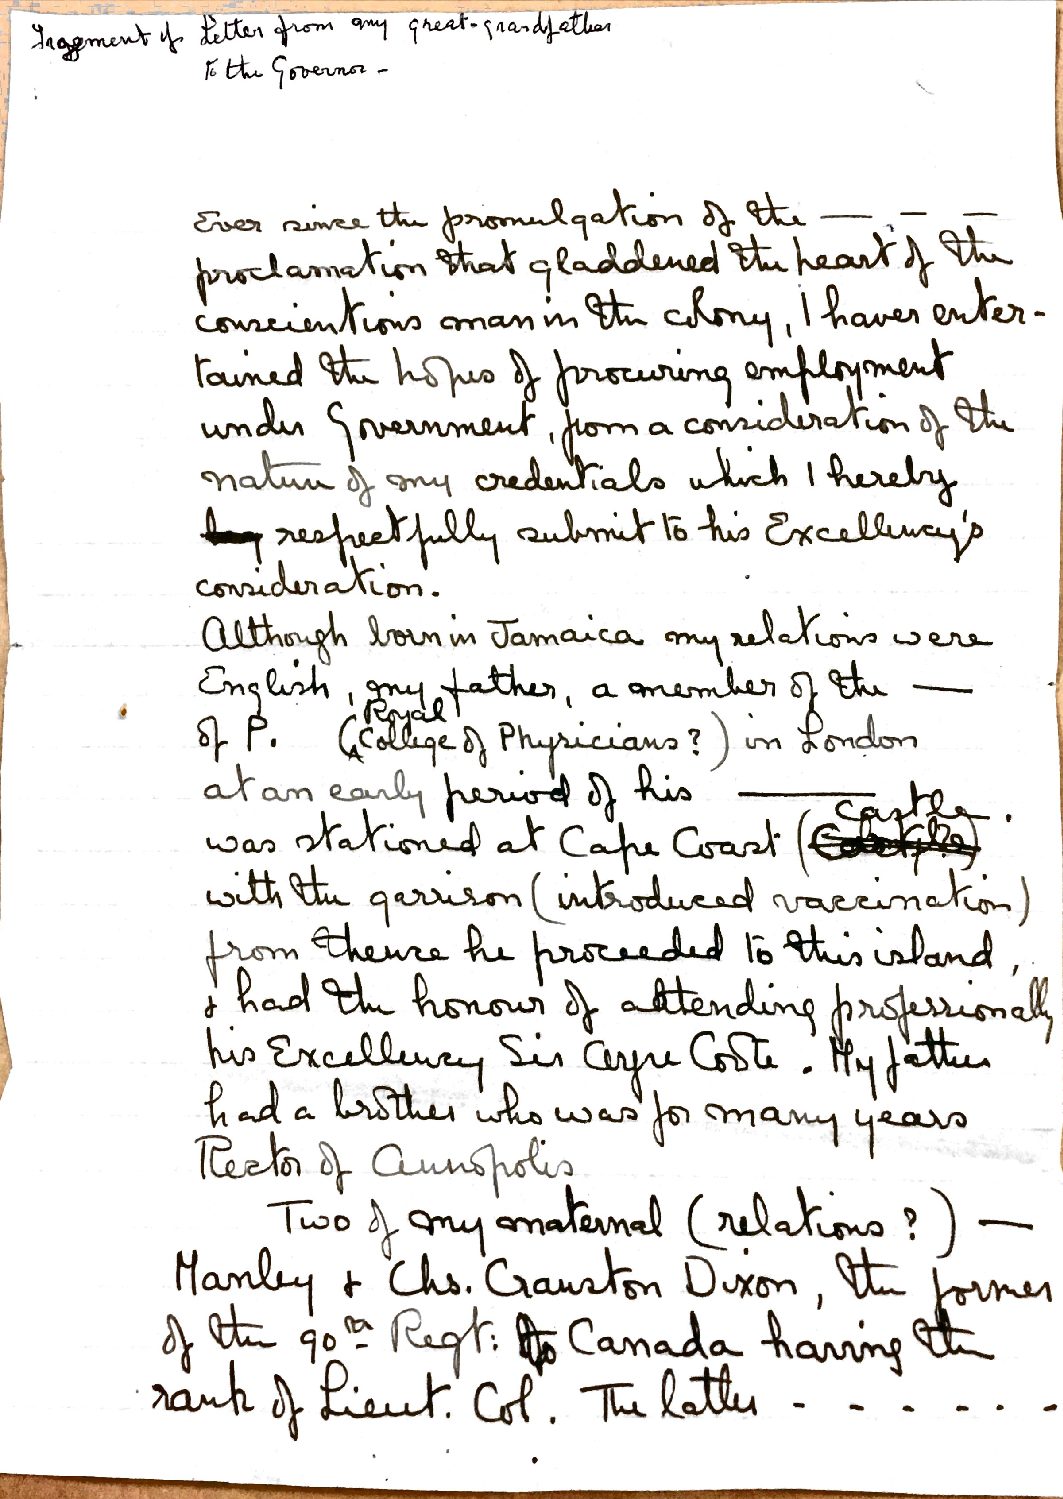 Fragment of Letter from my great-grandfather
to the Governor -
Ever since the promulgation of the — . — —
proclamation that gladdened the heart of the
conscientious man in the colony, I haver enter-
tained the hopes of procuring employment
under Government, from a consideration of the
nature of my credentials which I hereby
respectfully submit to his Excellency's
consideration.
Although born in Jamaica my relations were
English, my father, a member of the —
of P. (Royal College of Physicians?) in London
at an early period of his ——
was stationed at Cape Coast (Castle.
with the garrison (introduced vaccination)
from thence he proceeded to this island,
& had the honour of attending professionally
his Excellency Sir Eyre Coote. My father
had a brother who was for many years
Rector of Annopolis
Two of my maternal (relations?) —
Manley & Chs. Cranston Dixon, the former
of the 90th Regt: to Canada having the
rank of Lieut. Col. The latter - - - - - -